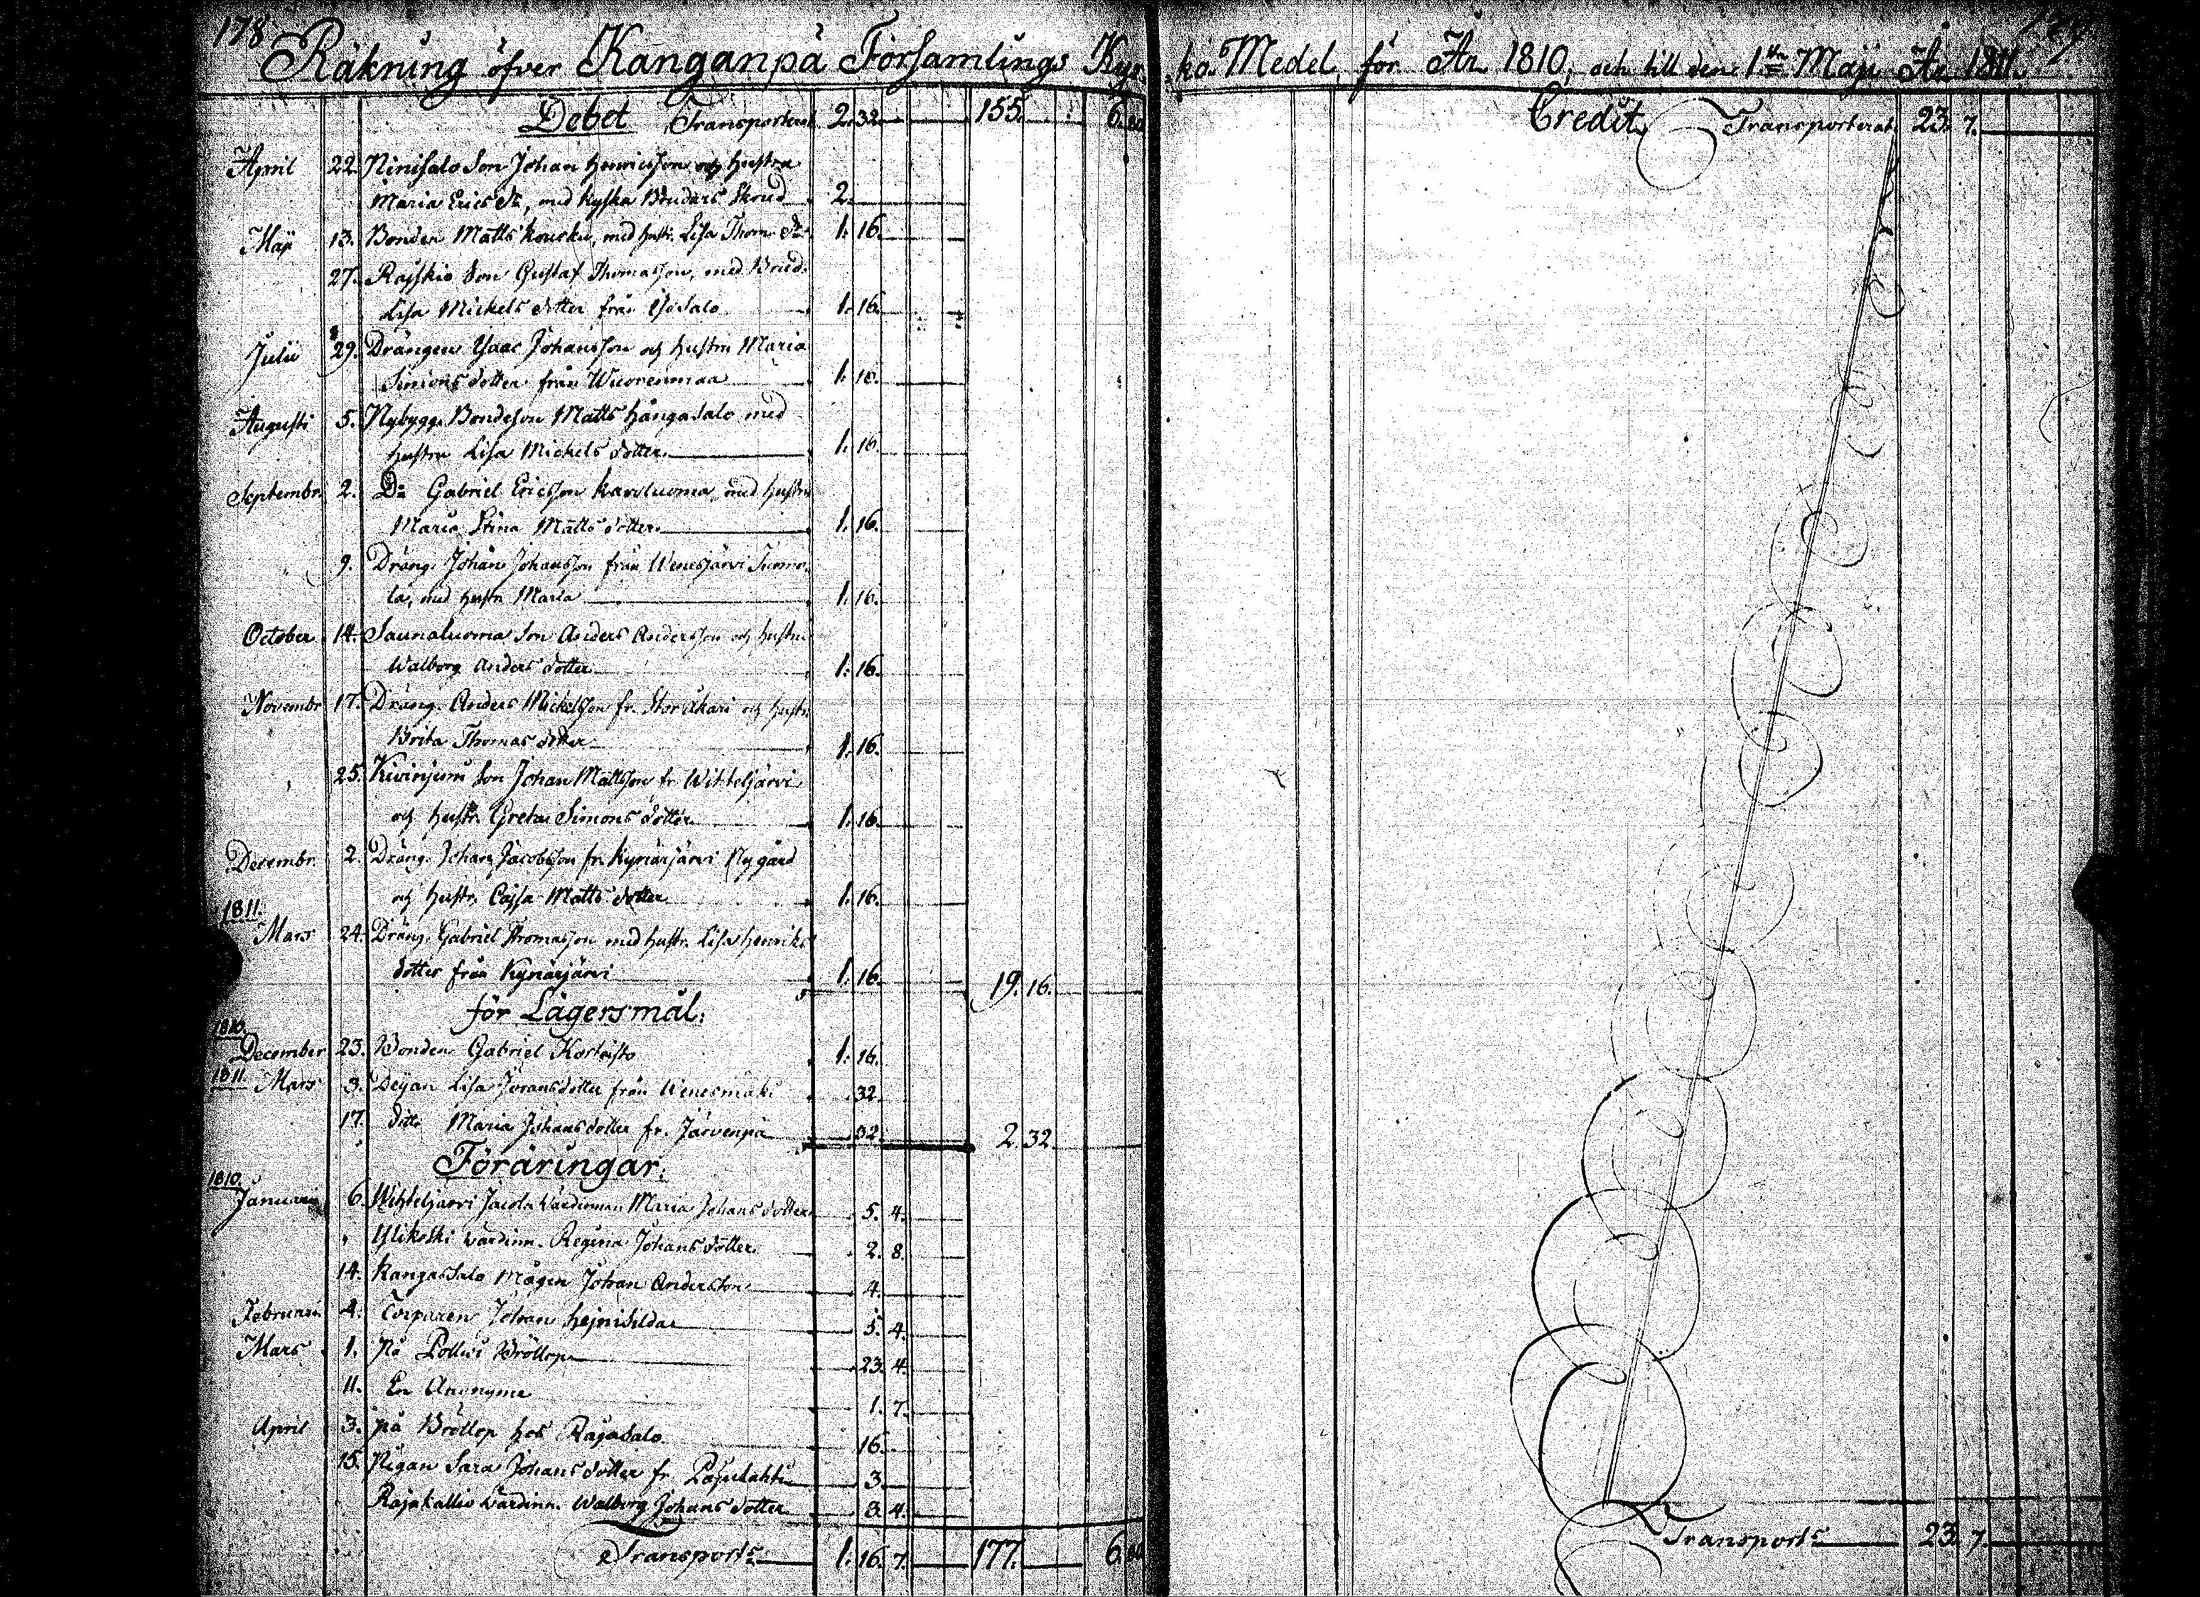 178
Räkning öfver Kanganpä Församlings Kyr-
Debet Transporterat 2. 32. 155. 6.
April 22. Ninisalo Son Johan Henricsson och Hustru
Maria Erics dr, med Kyska Brudars Skrud 2.
Maji 13. Bonden Matts Koucku, med hustr. Lisa Thom. dr 1. 16.
27. Rajskio Son Gustaf Thomasson, med Brud.
Lisa Mickels dotter från 1. 16.
Julii 29. Drängen Isaac Johansson och hustru Maria
Simons dotter från Wuorenmaa 1. 16.
Augusti 5. Nybygg. Bondeson Matts Hångasalo med
hustru Lisa Mickels dotter 1. 16.
Septembr. 2. Do Gabriel Ericsson Karvluoma, med hustru
Maria Stina Matts dotter 1. 16.
9. Dräng. Johan Johansson från Wenesjärvi Tuomo-
la, med hustr. Maria 1. 16.
October 14. Saunaluoma Son Anders Andersson och hustru
Walborg Anders dotter 1. 16.
Novembr. 17. Dräng. Anders Mickelsson fr. Storåkari och hustr.
Brita Thomas dotter 1. 16.
25. Kivinjemi Son Johan Mattsson fr. Wihteljärvi
och hustr. Greta Simons dotter 1. 16.
Decembr. 2. Dräng. Johan Jacobsson fr. Kynärjärvi Nygård
och hustr. Cajsa Matts dotter 1. 16.
1811.
Mars 24. Dräng. Gabriel Thomasson med hustr. Lisa Henriks
dotter från Kynärjärvi 1. 16. 19. 16.
för Lägersmål:
1810.
December 23. Bonden Gabriel Korteisto 1. 16.
1811. Mars 3. Dejan Lisa Jöransdotter från Wenesmäki 32.
17. ditto Maria Johans dotter fr. Järvenpä 32. 2. 32.
Föräringar:
1810.
Januarii 6. Wihteljärvi Jacola Wärdinnan Maria Johans dotter 5. 4.
Ylikoski wärdinn. Regina Johans dotter 2. 8.
14. Kangassalo Mågen Johan Andersson 4.
Februarii 4. Torparen Johan Hejnisilda 5. 4.
Mars 1. På Pollui Bröllop 23. 4.
11. En Anonyme 1. 7.
April 3. på Bröllop hos Rajasalo 16.
15. Pigan Sara Johans dotter fr. 3.
Rajakallio wärdinn. Walborg Johans dotter 8. 4.
Transport 1. 16. 7. 177. 6.
ko Medel för År 1810, och till den 1 Maji År 1811.
Credit, Transporterat 23. 7.
Transport 23. 7.